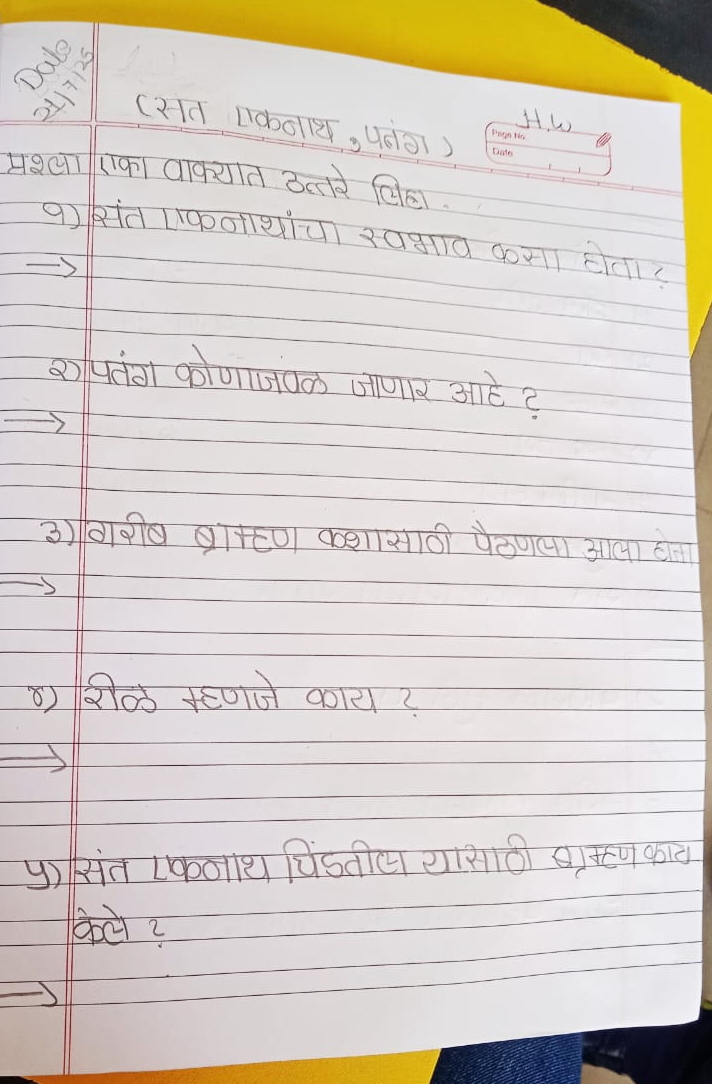 Date
21/7/25
(संत एकनाथ, पतंग) H.W
Page No.
Date
प्रश्ना एका वाक्यात उत्तरे लिहा.
१) संत एकनाथांचा स्वभाव कसा होता?
⇒
२) पतंग कोणाजवळ जाणार आहे?
⇒
३) गरीब ब्राम्हण कशासाठी पैठणला आला होता
⇒
४) रीळ म्हणजे काय?
⇒
५) संत एकनाथ चिडतील यासाठी ब्राम्हण काय
केले?
⇒